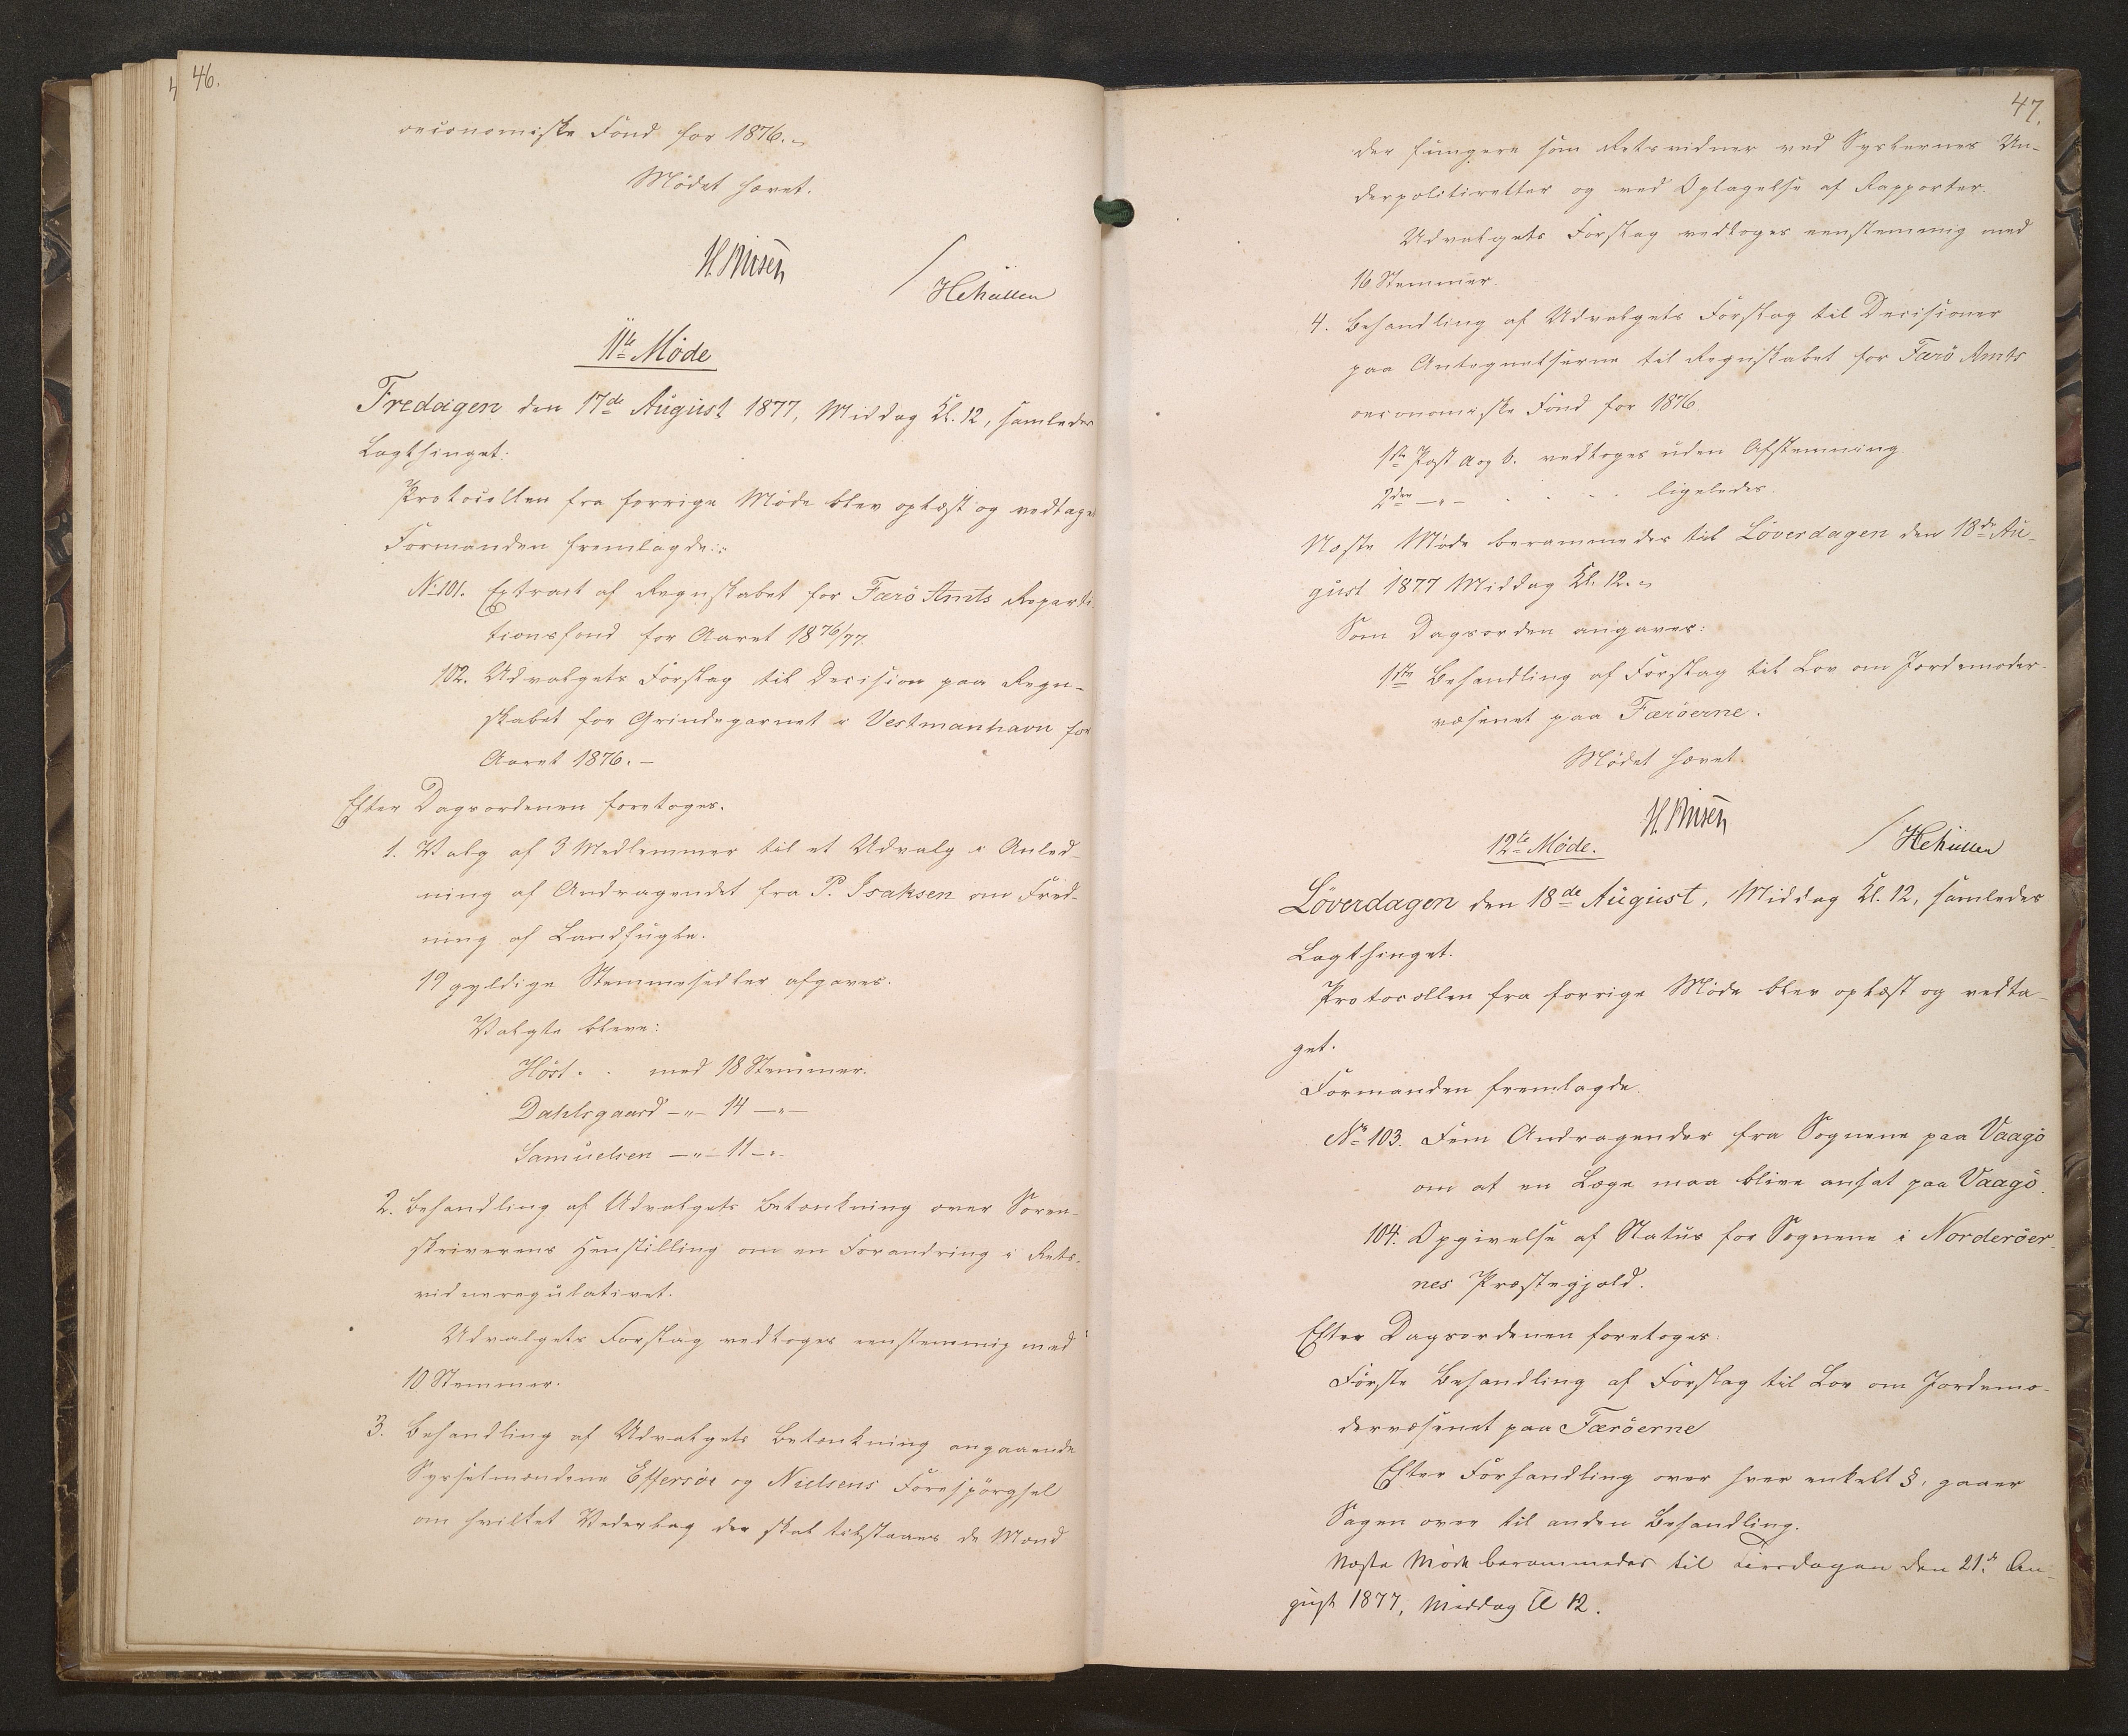 46.
oeconomiske Fond for 1876.
Mødet hævet.
11te Møde
Fredagen den 17de August 1877, Middag Kl. 12, samledes
Lagthinget:
Protocollen fra forrige Møde blev oplæst og vedtaget
Formanden fremlagde:
No 101. Extract af Regnskabet for Færö Amts Reparti-
tionsfond for Aaret 1876/77.
102. Udvalgets Forslag til Decision paa Regn-
skabet for Grindegarnet i Vestmanhavn for
Aaret 1876. —
Efter Dagsordenen foretoges.
1. Valg af 3 Medlemmer til et Udvalg i Anled-
ning af Andragendet fra P. Isaksen om Fred-
ning af Landfugle.
19 gyldige Stemmesedler afgaves.
Valgte bleve:
Höst . . med 18 Stemmer.
Dahlsgaard —"— 14 —"—
Samuelsen —"— 11 —"—
2. Behandling af Udvalgets Betænkning over Soren-
skriverens Henstilling om en Forandring i Rets-
vidneregulativet.
Udvalgets Forslag vedtoges eenstemmig med
10 Stemmer.
3. Behandling af Udvalgets Betænkning angaaende
Sysselmændene Effersøe og Nielsens Forespörgsel
om hvilket Vederlag der skal tilstaaes de Mænd
47.
der fungere som Retsvidner ved Syslernes Un-
derpolitiretter og ved Optagelse af Rapporter.
Udvalgets Forslag vedtoges eenstemmig med
16 Stemmer.
4. Behandling af Udvalgets Forslag til Decisioner
paa Antegnelserne til Regnskabet for Færö Amts
oeconomiske Fond for 1876.
1ste Post a og b. vedtoges uden Afstemning.
2den —"— . . . . ligeledes.
Næste Møde berammedes til Löverdagen den 18de Au-
gust 1877 Middag Kl. 12.
Som Dagsorden angaves:
1ste Behandling af Forslag til Lov om Jordemoder-
væsenet paa Færöerne.
Mødet hævet.
12te Møde.
Löverdagen den 18de August, Middag Kl. 12, samledes
Lagthinget.
Protocollen fra forrige Møde blev oplæst og vedta-
get.
Formanden fremlagde.
No 103. Fem Andragender fra Sognene paa Vaagö
om at en Læge maa blive ansat paa Vaagö.
104. Opgivelse af Status for Sognene i Norderöer-
nes Præstegjæld.
Efter Dagsordenen foretoges:
Förste Behandling af Forslag til Lov om Jordemo-
dervæsenet paa Færöerne
Efter Forhandling over hver enkelt §, gaaer
Sagen over til anden Behandling.
Næste Møde berammedes til Tirsdagen den 21de Au-
gust 1877, Middag Kl 12.